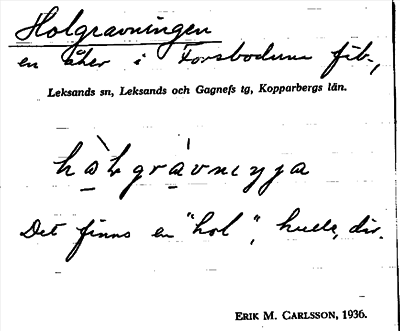 Holgravningen
en åker i Forsbodarna fäb.,
Leksands sn, Leksands och Gagnefs tg, Kopparbergs län.
Det finns en "hol", kulle, där.
ERIK M. CARLSSON, 1936.